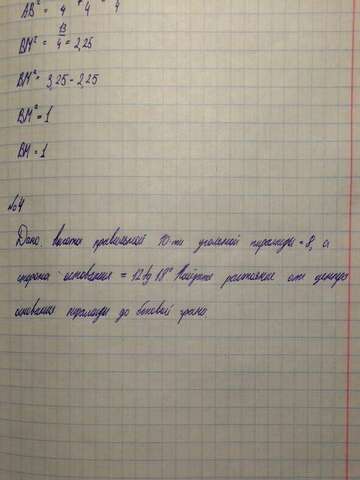 AB² = 4 4 4
BM² = 13/4 = 2,25
BM² = 3,25 - 2,25
BM² = 1
BM = 1
№4
Дано: высота правильной 10-ти угольной пирамиды = 8, а
сторона основания = 12tg 18° Найдите расстояние от центра
основания пирамиды до боковой грани.